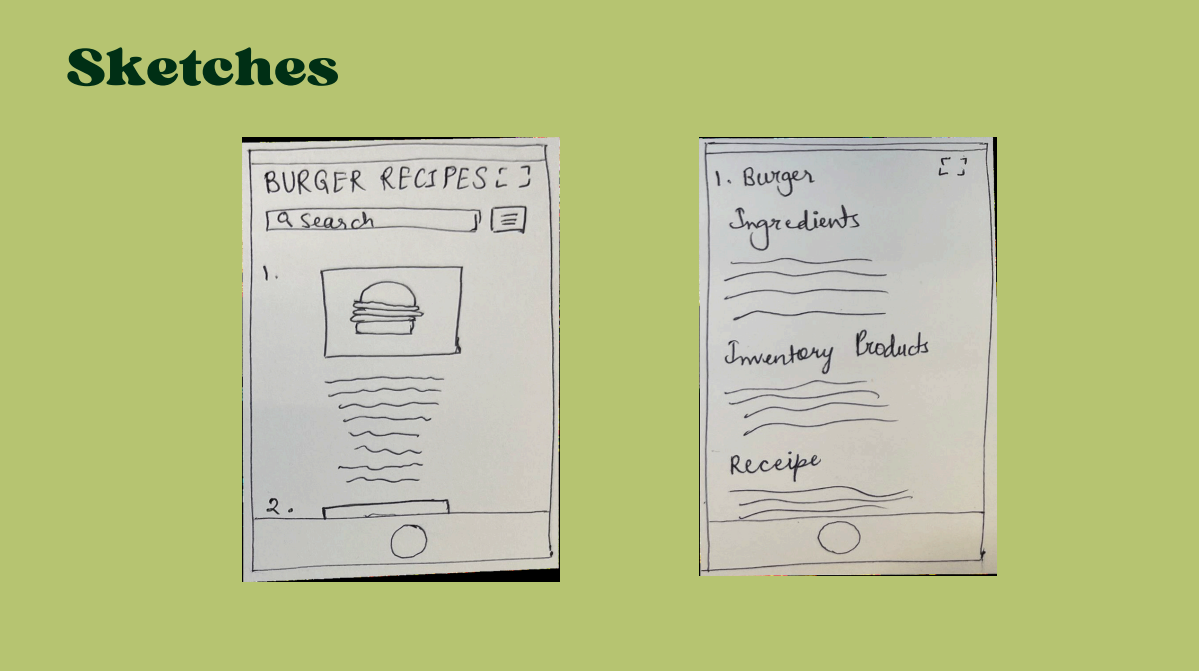 Sketches
BURGER RECIPES
Search
1.
2.
1. Burger
Ingredients
Inventory Products
Receipe